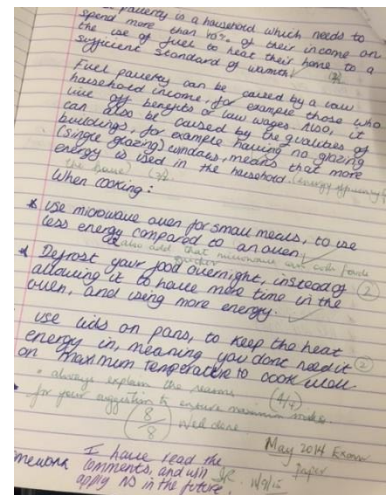 pauerty is a household which needs to
spend more than 10% of their income on
the use of fuel to heat their home to a
sufficient standard of warmth.
Fuel pauerty can be caused by a low
household income, for example those who
live off benefits or low wages. Also, it
can also be caused by the qualities of
buildings, for example having no glazing
(single glazing) windows, means that more
energy is used in the household. (energy efficiency
the home)
When cooking:
* use microwave oven for small meals, to use
less energy compared to an oven
also add that microwave cook foods
quicker
* Defrost your food overnight, instead of (2)
allowing it to have more time in the
oven, and using more energy.
use lids on pans, to keep the heat
energy in, meaning you dont need it (2)
on maximum temperature to cook well.
* always explain the reasons (4/4)
for your suggestion to ensure maximum marks.
8/8 well done
May 2014 Exam
paper
I have read the
comments, and will
apply in the future.